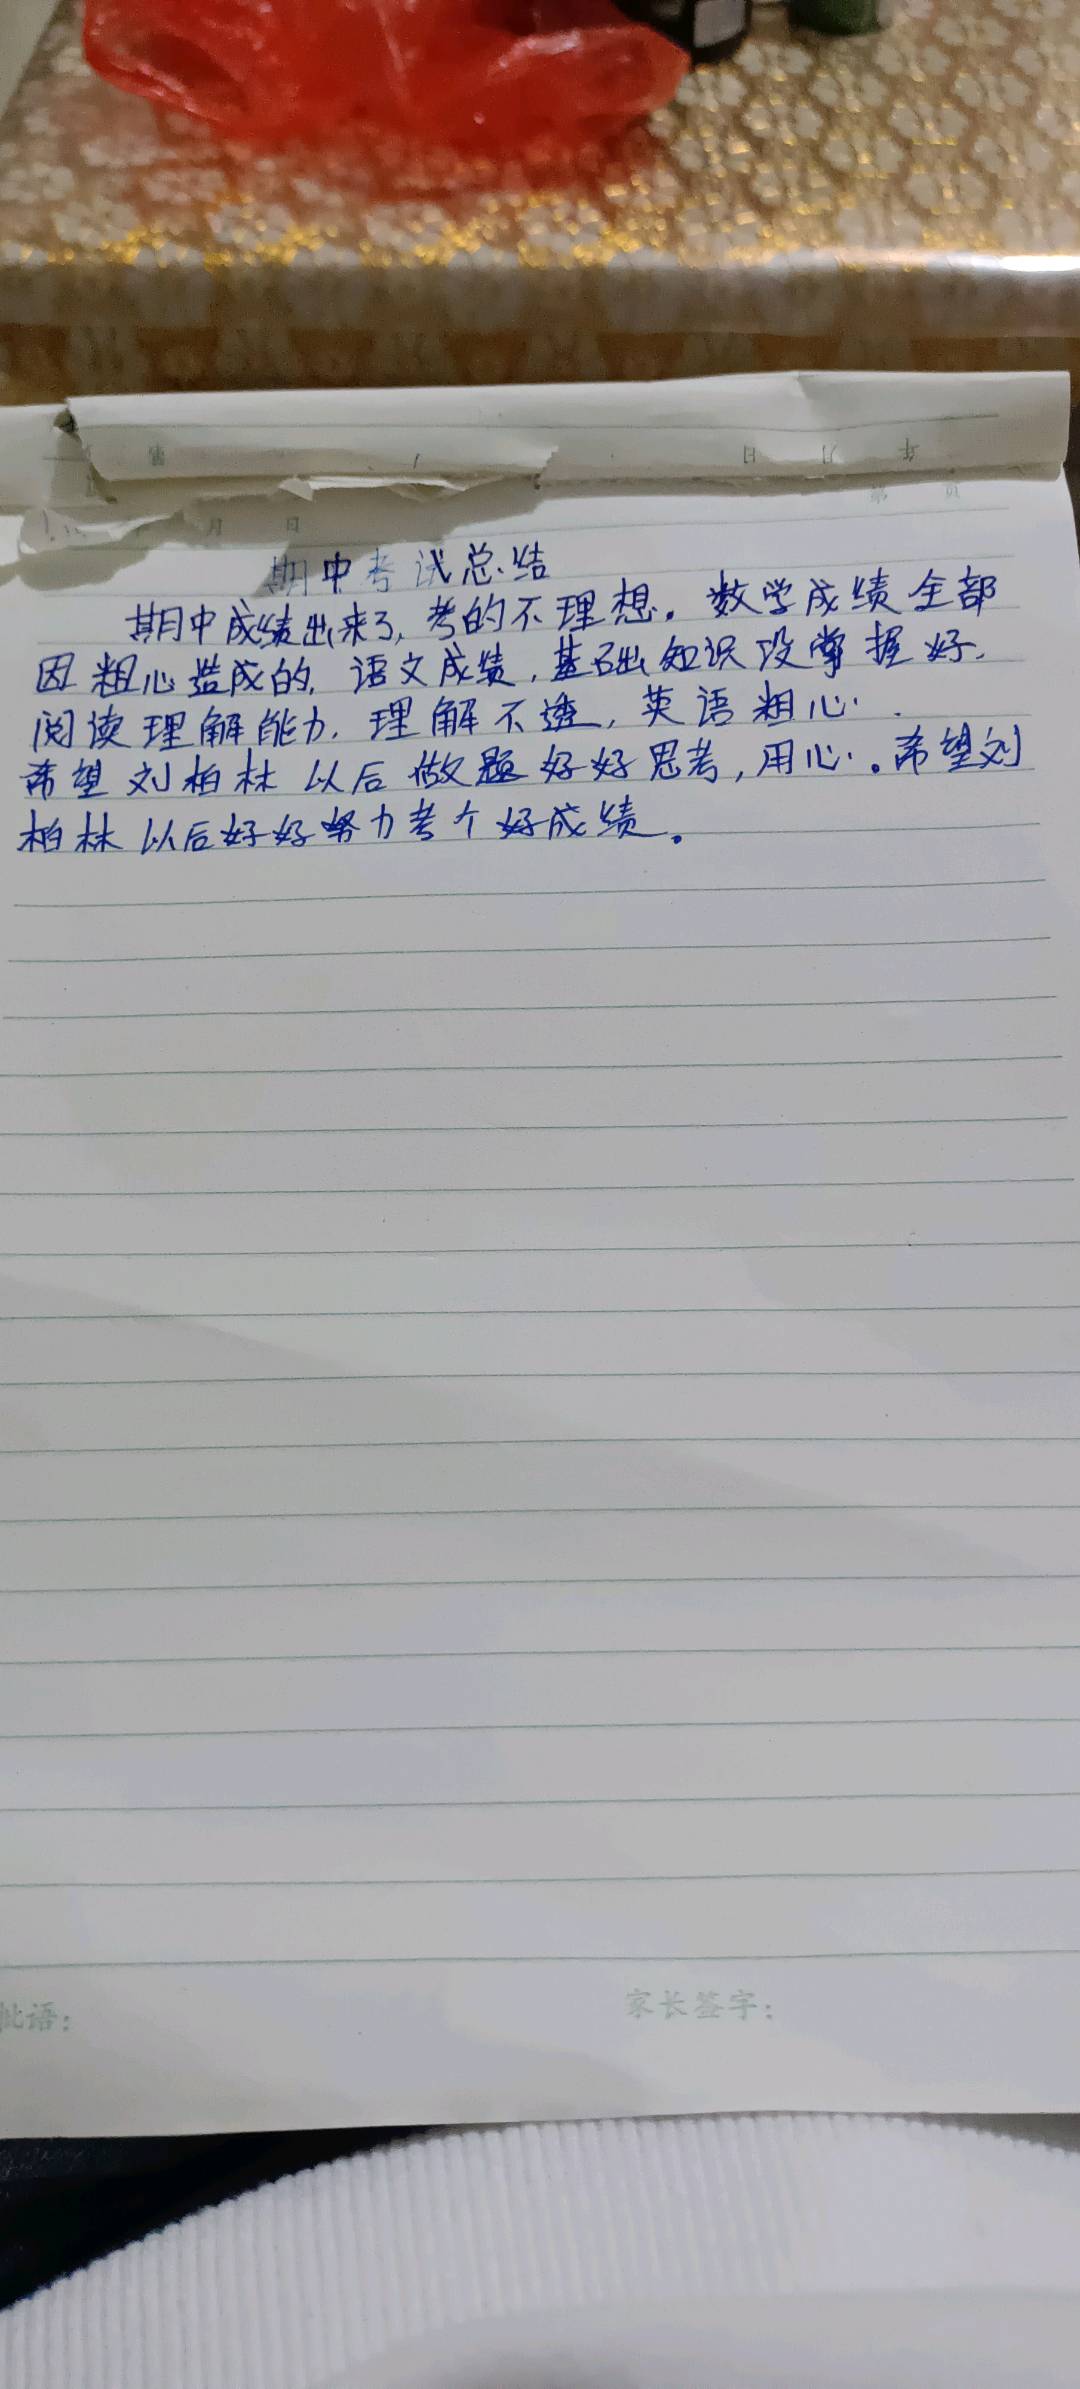 年 月 日
第 页
月 日
期中考试总结
期中成绩出来了,考的不理想。数学成绩全部
因粗心造成的,语文成绩,基础知识没掌握好,
阅读理解能力,理解不透,英语粗心.
希望刘柏林以后做题好好思考,用心。希望刘
柏林以后好好努力考个好成绩。
批语:
家长签字: